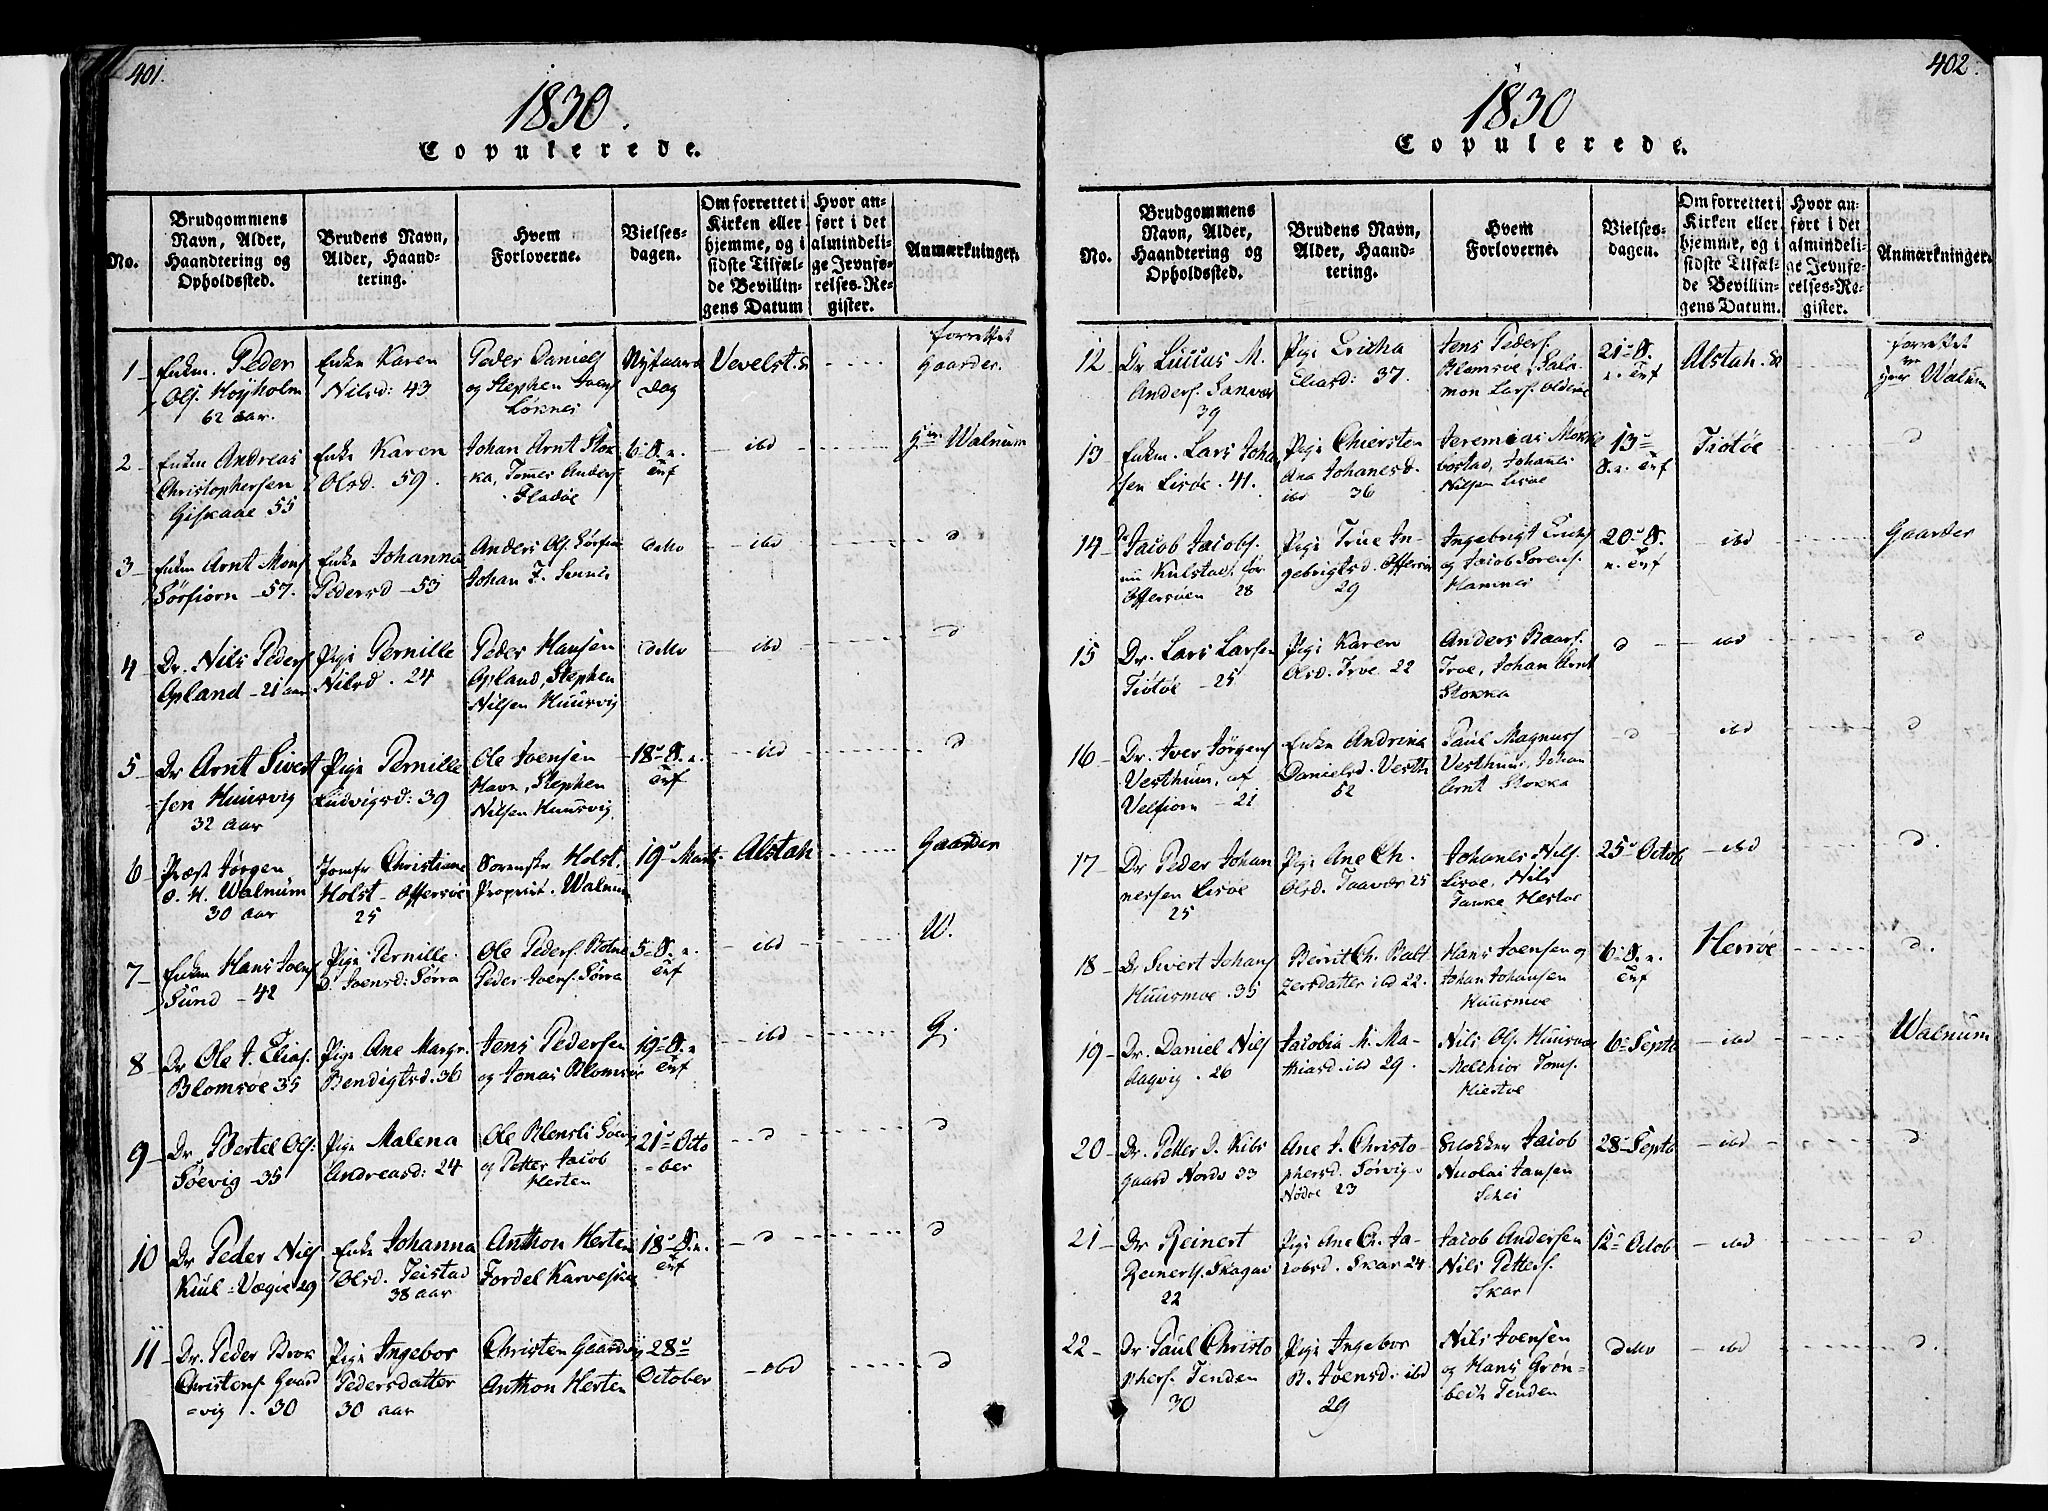 401.
1830.
Copulerede.
No.
Brudgommens Navn, Alder, Haandtering og Opholdssted.
Brudens Navn, Alder, Haandtering.
Hvem Forloverne.
Vielsesdagen.
Om forrettet i Kirken eller hjemme, og i sidste Tilfælde Bevillingens Datum
Hvor anført i det almindelige Jevnførelses-Register.
Anmærkninger.
1 Enkm. Peder Ols. Høyholm 62 aar.
Enke Karen Nilsd: 43
Peder Daniels og Stephen Joens Løknes
Nytaarsdag
Vevelst.
forrettet Gaarder
2 Enkm Andreas Christophersen Giskaae 55
Enke Karen Olsd. 59.
Johan Arnt Stokka, Tomes Anders Fladøe
6 S. n. Trf
ibd
Walnum
3 Enkm Arnt Mons Sørfiorn 57.
Enke Johanna Pedersd 53
Anders Ols. Sørfior Johan
detto
ibd
d
4 Dr. Nils Peders Opland 21 aar
Pige Pernille Nilsd. 24
Peder Hansen Opland, Stephen Nilsen Huusvig
detto
ibd
d
5 Dr Arnt Sivertsen Huusvig 32 aar
Pige Pernille Ludvigsd: 39
Ole Joensen Havn, Stephen Nilsen Huusvig
18 S. n. Trf
ibd
d
6 Præst Jørgen O. H. Walnum 30 aar
Jomfr Christiane Holst Offersøe 25
Sorenskr Holst. Propriet. Walnum
19 Marts
Alstah
Gaarder
7 Enkm Hans Joens Sund 42
Pige Pernille D. Joensd: Sørra
Ole Peders. Botne Peder Joens. Sørra
5 S. n. Trf
ibd
W.
8 Dr Ole J. Elias. Blomsøe 35
Pige Ane Margr. Bendigtsd. 36
Jens Pedersen og Jonas Blomsøe
19 S. n Trf
ibd
G.
9 Dr. Bertel Ols. Søevig 35
Pige Malena Andreasd: 24
Ole og Petter Jacob Herten
21 October
d
d
10 Dr Peder Nils. Kiul Vægie 29
Enke Johanna Olsd. Teistad 38 aar
Anthon Herten Fordel
18 S. n. Trf
d
d
11 Dr. Peder Brok Christens. Gaardvig. 30
Pige Ingebor Pedersdatter 30 aar
Christen Gaardvig Anthon Herten
28 October
ibd
d
402.
1830
Copulerede.
No.
Brudgommens Navn, Alder, Haandtering og Opholdssted.
Brudens Navn, Alder, Haandtering.
Hvem Forloverne.
Vielsesdagen.
Om forrettet i Kirken eller hjemme, og i sidste Tilfælde Bevillingens Datum.
Hvor anført i det almindelige Jevnførelses-Register.
Anmærkninger.
12 Dr Luccas M. Anders. Sanvær 39
Pige Ericha Eliasd: 37.
Jens Peders. Blomsøe, Salmon Lars. Olderøe
21 S. n. Trf
Alstah.
forrettet Walnum
13 Enkm. Lars Johansen Lisøe. 41.
Pige Chiersten Ana Johanesd. ibd 36
Jeremias Mokkelbostad, Johanes Nilsen Lisøe
13 S. n. Trf
Tiøtøe
d
14 Jacob Jacobs. Kulstad, for Offersøen 28
Pige True Ingebrigtsd. Offersøe 29
Ingebrigt Erichs og Jacob Sørens. Hamnes
20 S. n. Trf
ibd
Gaarder
15 Dr. Lars Larsen Tiøtøe 25
Pige Karen Olsd. Troe 22
Anders Baars. Troe, Johan Arnt Stokka
d
ibd
d
16 Dr. Iver Jørgens Vesthum, af Velfiorn 21
Enke Andrina Danielsd. Vesth 52
Paul Magnus Vesthum, Johan Arnt Stokka
d
ibd
d
17 Dr Peder Johannessen Lisøe 25
Pige Ane Ch. Olsd. Taavær 25
Johanes Nils. Lisøe, Nils Hestøe
25 Octob
ibd
d.
18 Dr Sivert Johans Huusmoe. 35
Berrit Ch. Baltzersdatter ibd 22.
Hans Joensen og Johan Johansen Huusmoe
6 S. n. Trf
Herrøe
d.
19 Dr. Daniel Nils Aagvig. 26
Jacobia M. Mathiasd. ibd 29.
Nils Ols. Huusvær Melchior Toms. Hiestøe
6 Septb
ibd
Walnum
20 Dr. Petter J. Kibsgaard Nordv 33
Ane J. Christophersd. Sørvig Nødøe 23
Klokker Jacob Nicolai Jansen
28 Septb
ibd
d
21 Dr Reinert Reinerts. Skagar 22
Pige Ane Ch. Jacobsd. Skar 24
Jacob Andersen Nils Petters. Skar
12 Octob
ibd
d
22 Dr Paul Christophers. Tenden 30
Pige Ingebor B. Joensd. ibd 29
Nils Joensen og Hans Grønbech Tenden
detto
ibd
d.